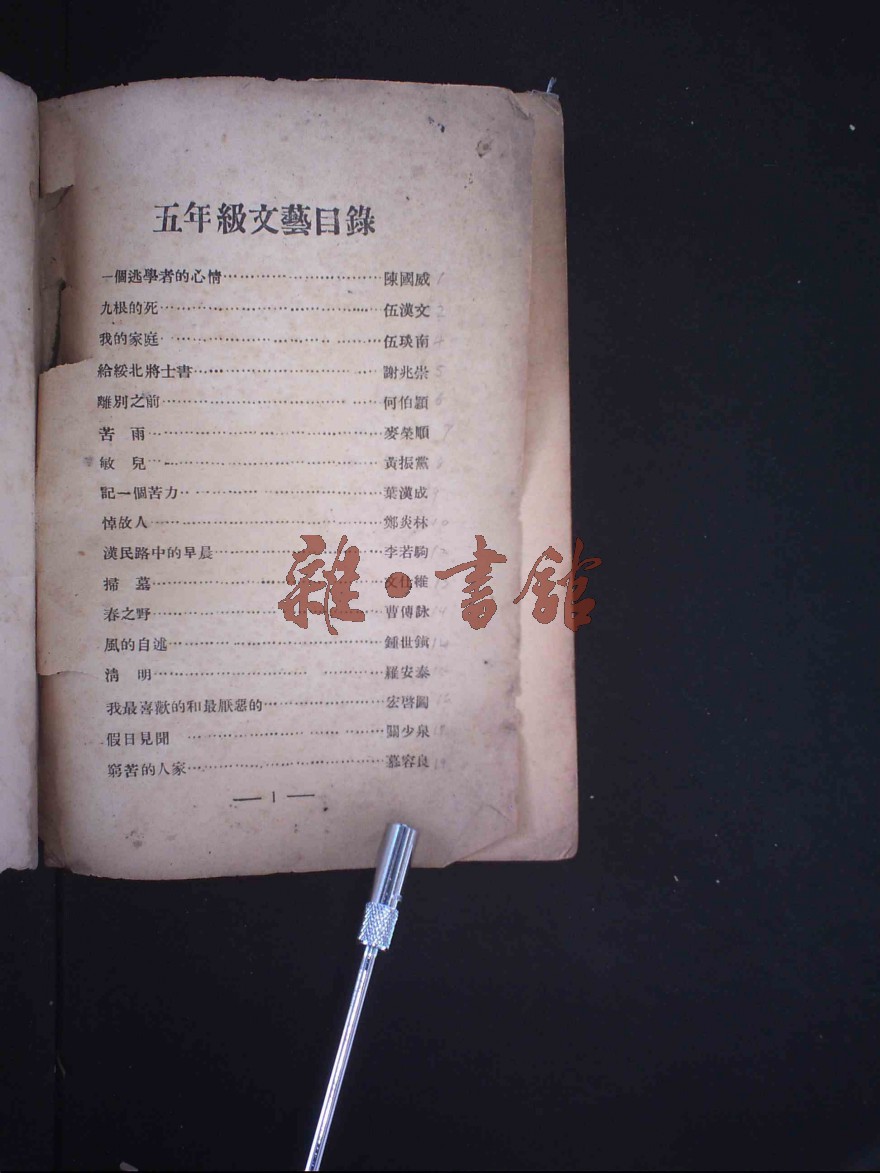 五年級文藝目錄
一個逃學者的心情……………………………陳國威
九根的死……………………………伍漢文
我的家庭……………………………伍琰南
給綏北將士書……………………………謝兆崇
離別之前……………………………何伯頴
苦　雨……………………………麥榮順
敏　兒……………………………黃振黨
記一個苦力……………………………葉漢成
悼故人……………………………鄭炎林
漢民路中的早晨……………………………李若駒
掃　墓……………………………文 維
春之野……………………………曹傳詠
風的自述……………………………鍾世鎭
淸　明……………………………羅安泰
我最喜歡的和最厭惡的……………………………宏啓
假日見聞……………………………關少泉
窮苦的人家……………………………慕容良
— 1 —
雜·書館